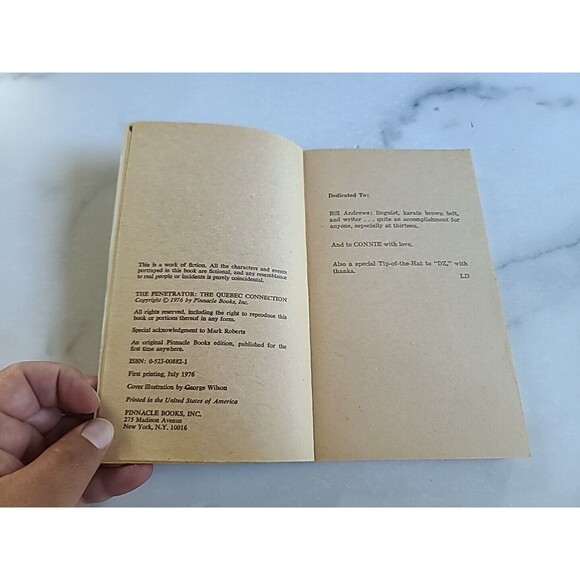 This is a work of fiction. All the characters and events
portrayed in this book are fictional, and any resemblance
to real people or incidents is purely coincidental.
THE PENETRATOR: THE QUEBEC CONNECTION
Copyright © 1976 by Pinnacle Books, Inc.
All rights reserved, including the right to reproduce this
book or portions thereof in any form.
Special acknowledgment to Mark Roberts
An original Pinnacle Books edition, published for the
first time anywhere.
ISBN: 0-523-00882-1
First printing, July 1976
Cover illustration by George Wilson
Printed in the United States of America
PINNACLE BOOKS, INC.
275 Madison Avenue
New York, N.Y. 10016
Dedicated To:
Bill Andrews: linguist, karate brown belt,
and writer . . . quite an accomplishment for
anyone, especially at thirteen.
And to CONNIE with love.
Also a special Tip-of-the-Hat to "DZ," with
thanks.
LD